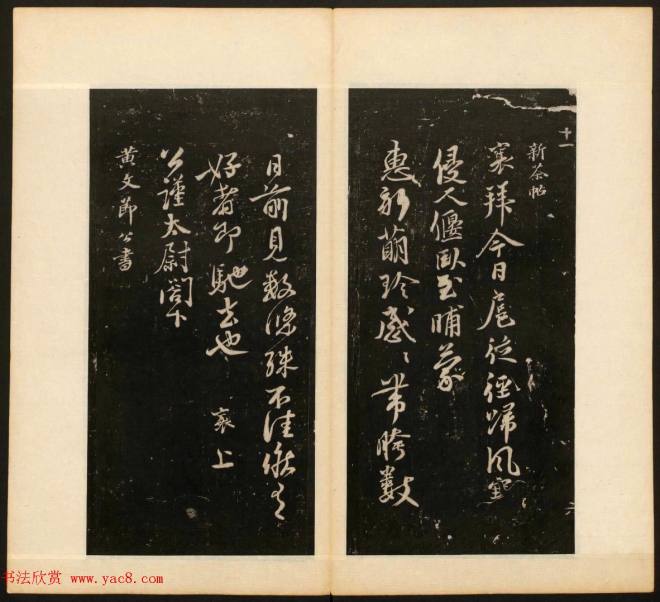 十一
新茶帖
襄拜今日扈從徑歸風寒
侵人偃臥至晡蒙
惠新萌珍感〻帶胯數
日前見數條殊不佳候有
好者即馳去也 襄上
公謹太尉閣下
黃文節公書
书法欣赏 www.yac8.com